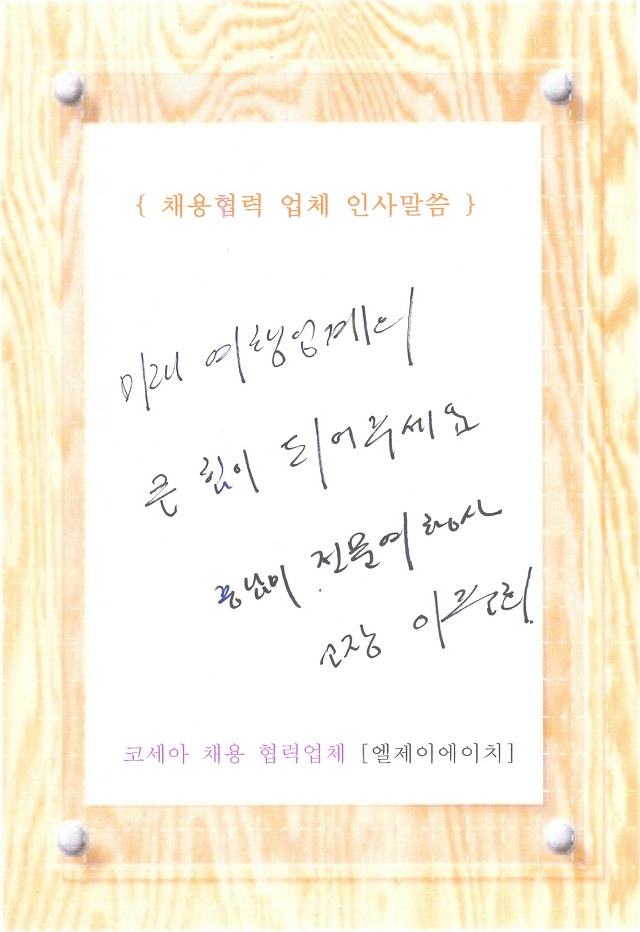 { 채용협력 업체 인사말씀 }
미래 여행업계의
큰 힘이 되어주세요
중남미 전문여행사
소장
코세아 채용 협력업체 [엘제이에이치]